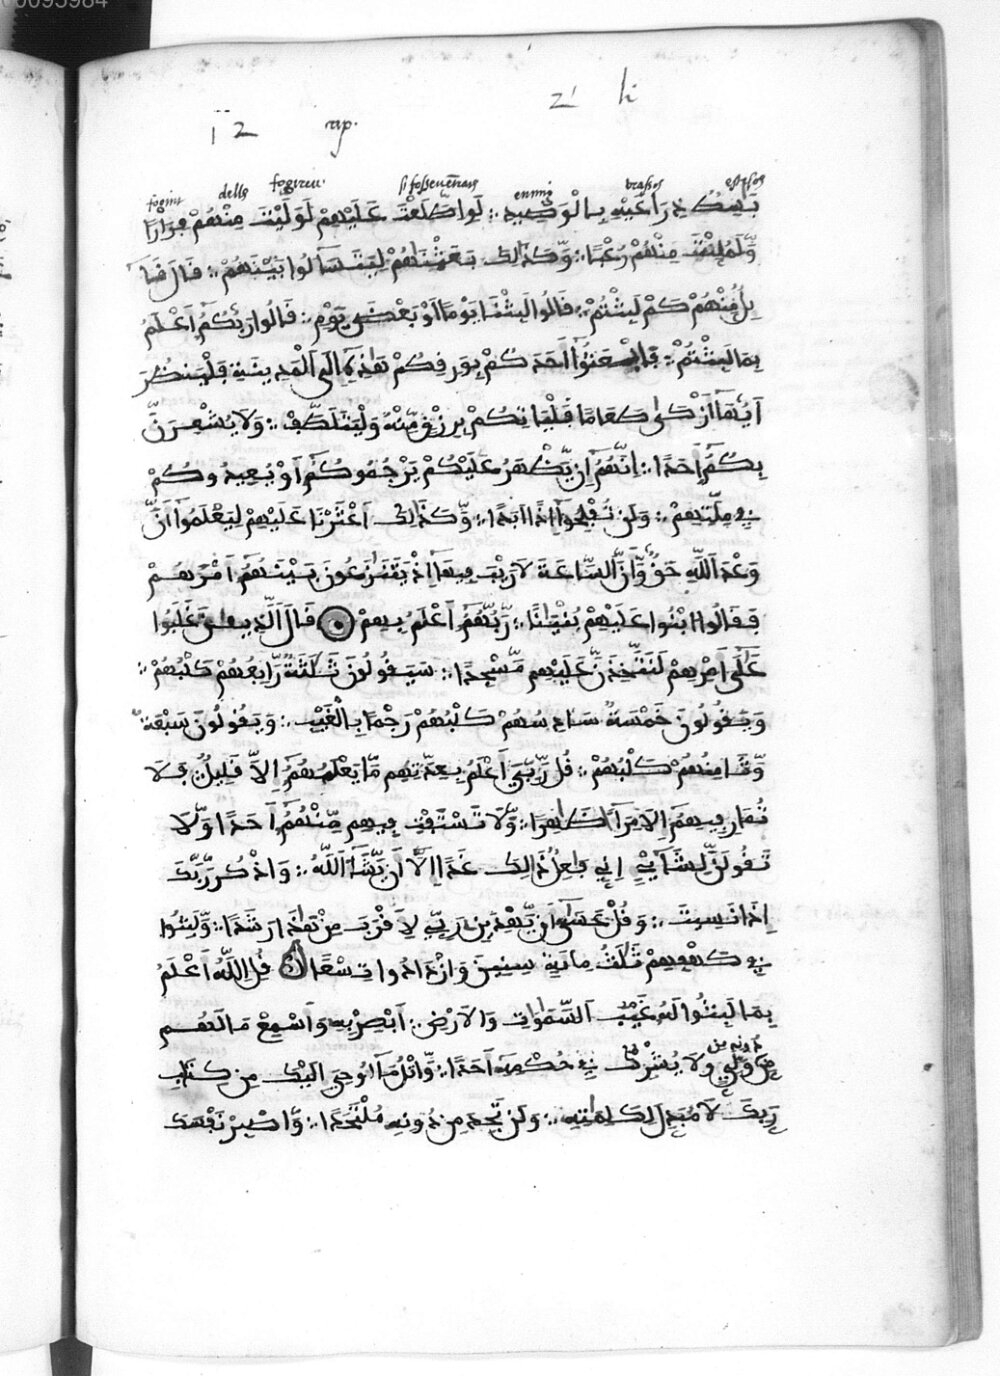 00095984
z' li
12 cap.
fogint dells fogireu. si fosseuenrais enimi brassos estesos
بَسِطٌ ذِرَاعَيْهِ بِالْوَصِيدِ ۞ لَوِ اطَّلَعْتَ عَلَيْهِمْ لَوَلَّيْتَ مِنْهُمْ فِرَارًا
وَّلَمُلِّئْتَ مِنْهُمْ رُعْبًا ۞ وَّكَذَالِكَ بَعَثْنَاهُمْ لِيَتَسَآءَلُوا بَيْنَهُمْ ۞ قَالَ قَآ
ئِلٌ مِّنْهُمْ كَمْ لَبِثْتُمْ ۞ قَالُوا لَبِثْنَا يَوْمًا اَوْ بَعْضَ يَوْمٍ ۞ قَالُوا رَبُّكُمْ اَعْلَمُ
بِمَا لَبِثْتُمْ ۞ فَابْعَثُوا اَحَدَكُمْ بِوَرِقِكُمْ هَٰذِهِ اِلَى اَلْمَدِينَةِ فَلْيَنظُرَ
اَيُّهَا اَزْكَىٰ طَعَامًا فَلْيَاتِكُمْ بِرِزْقٍ مِّنْهُ وَلْيَتَلَطَّفْ ۞ وَلَا يُشْعِرَنَّ
بِكُمْ اَحَدًا ۞ اِنَّهُمْ اِن يَّظْهَرُوا عَلَيْكُمْ يَرْجُمُوكُمْ اَوْ يُعِيدُوكُمْ
فِي مِلَّتِهِمْ ۞ وَلَن تُفْلِحُوا اِذًا اَبَدًا ۞ وَّكَذَالِكَ اَعْثَرْنَا عَلَيْهِمْ لِيَعْلَمُوا اَنَّ
وَعْدَ اَللَّهِ حَقٌّ وَّاَنَّ اَلسَّاعَةَ لَا رَيْبَ فِيهَا اِذْ يَتَنَازَعُونَ بَيْنَهُمْ اَمْرَهُمْ
فَقَالُوا ابْنُوا عَلَيْهِمْ بُنْيَانًا ۞ رَّبُّهُمْ اَعْلَمُ بِهِمْ ۞ قَالَ اَلَّذِينَ غَلَبُوا
عَلَىٰ اَمْرِهِمْ لَنَتَّخِذَنَّ عَلَيْهِم مَّسْجِدًا ۞ سَيَقُولُونَ ثَلَٰثَةٌ رَّابِعُهُمْ كَلْبُهُمْ ۞
وَيَقُولُونَ خَمْسَةٌ سَادِسُهُمْ كَلْبُهُمْ رَجْمًا بِالْغَيْبِ ۞ وَيَقُولُونَ سَبْعَةٌ
وَّثَامِنُهُمْ كَلْبُهُمْ ۞ قُل رَّبِّيَ اَعْلَمُ بِعِدَّتِهِم مَّا يَعْلَمُهُمْ اِلَّا قَلِيلٌ فَلَا
تُمَارِ فِيهِمْ اِلَّا مِرَآءً ظَاهِرًا ۞ وَّلَا تَسْتَفْتِ فِيهِم مِّنْهُمْ اَحَدًا وَّلَا
تَقُولَنَّ لِشَاْيْءٍ اِنِّي فَاعِلٌ ذَالِكَ غَدًا اِلَّا اَن يَّشَآءَ اَللَّهُ ۞ وَاذْكُر رَّبَّكَ
اِذَا نَسِيتَ ۞ وَقُلْ عَسَىٰ اَن يَّهْدِيَنِ رَبِّي لِاَقْرَبَ مِنْ هَٰذَا رَشَدًا ۞ وَّلَبِثُوا
فِي كَهْفِهِمْ ثَلَٰثَ مِائَةٍ سِنِينَ وَازْدَادُوا تِسْعًا ۞ قُلِ اِللَّهُ اَعْلَمُ
بِمَا لَبِثُوا لَهُ غَيْبُ اَلسَّمَٰوَاتِ وَالَارْضِ ۞ اَبْصِرْ بِهِ وَاَسْمِعْ مَا لَهُم
مِّن دُونِهِ مِن وَلِيٍّ وَلَا يُشْرِكُ فِي حُكْمِهِ اَحَدًا ۞ وَّاتْلُ مَا اُوحِيَ اِلَيْكَ مِن كِتَابِ
رَبِّكَ لَا مُبَدِّلَ لِكَلِمَاتِهِ ۞ وَلَن تَجِدَ مِن دُونِهِ مُلْتَحَدًا ۞ وَّاصْبِرْ نَفْسَكَ